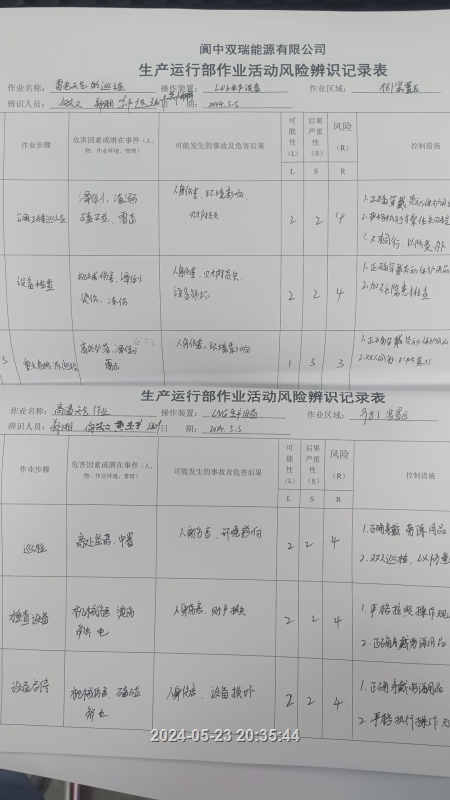 阆中双瑞能源有限公司
生产运行部作业活动风险辨识记录表
作业名称：雷电天气的巡检 操作装置：LNG生产设备 作业区域：
辨识人员： 日 期：2024.5.5
作业步骤 危害因素或潜在事件（人、物、作业环境、管理） 可能发生的事故及危害后果 可能性（L） 后果严重性（S） 风险（R） 控制措施
L S R
巡检 滑倒、
人身伤害、环境影响
财产损失
2 2 4
1.正确穿戴劳动保护用品
设备检查 机械伤害、滑倒
烫伤、冻伤
人身伤害、财产损失、
设备损坏
2 2 4
1.正确穿戴劳动保护用品
2.加强隐患排查
3 高处坠落、滑倒
雷击
人身伤害、环境影响
1 3 3
1.正确穿戴劳动保护用品
生产运行部作业活动风险辨识记录表
作业名称：高温天气作业 操作装置：LNG生产设备 作业区域：
辨识人员： 日 期：2024.5.5
作业步骤 危害因素或潜在事件（人、物、作业环境、管理） 可能发生的事故及危害后果 可能性（L） 后果严重性（S） 风险（R） 控制措施
L S R
巡检 高处坠落、中暑 人身伤害、环境影响 2 2 4
1.正确穿戴劳保用品
2.双人巡检，以防意
检查设备 机械伤害 烫伤
触电
人身伤害、财产损失 2 2 4
1.严格按照操作规
2.正确穿戴劳保用品
设备启停 机械伤害、磕碰
触电
人身伤害、设备损坏 2 2 4
1.正确穿戴劳保用品
2.严格执行操作规
2024-05-23 20:35:44